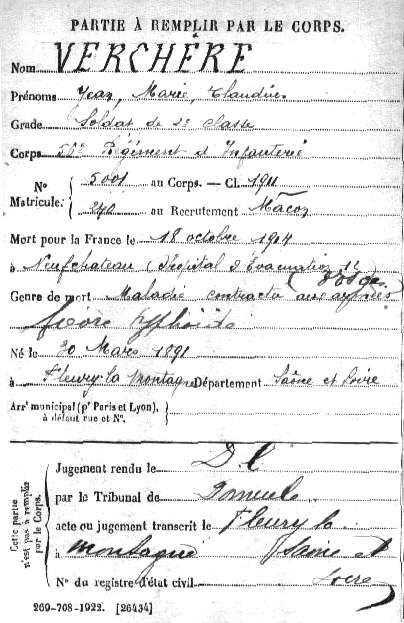 PARTIE À REMPLIR PAR LE CORPS.
Nom VERCHÈRE
Prénoms Jean, Marie, Claudius
Grade Soldat de 2e classe
Corps 56e Régiment d'Infanterie
N° Matricule. { 5001 au Corps. — Cl. 1911
270 au Recrutement Mâcon
Mort pour la France le 18 octobre 1914
à Neufchateau (hôpital d'Evacuation 1e
(Vosges)
Genre de mort Maladie contracté aux armées
fièvre typhoïde
Né le 30 Mars 1891
à Fleury la Montagne Département Saône et Loire
Arrt municipal (pr Paris et Lyon), à défaut rue et N°. {
Cette partie n'est pas à remplir par le Corps.
Jugement rendu le
par le Tribunal de
acte ou jugement transcrit le Fleury la
à montagne Saône et
N° du registre d'état civil Loire
269-708-1922. [26434]